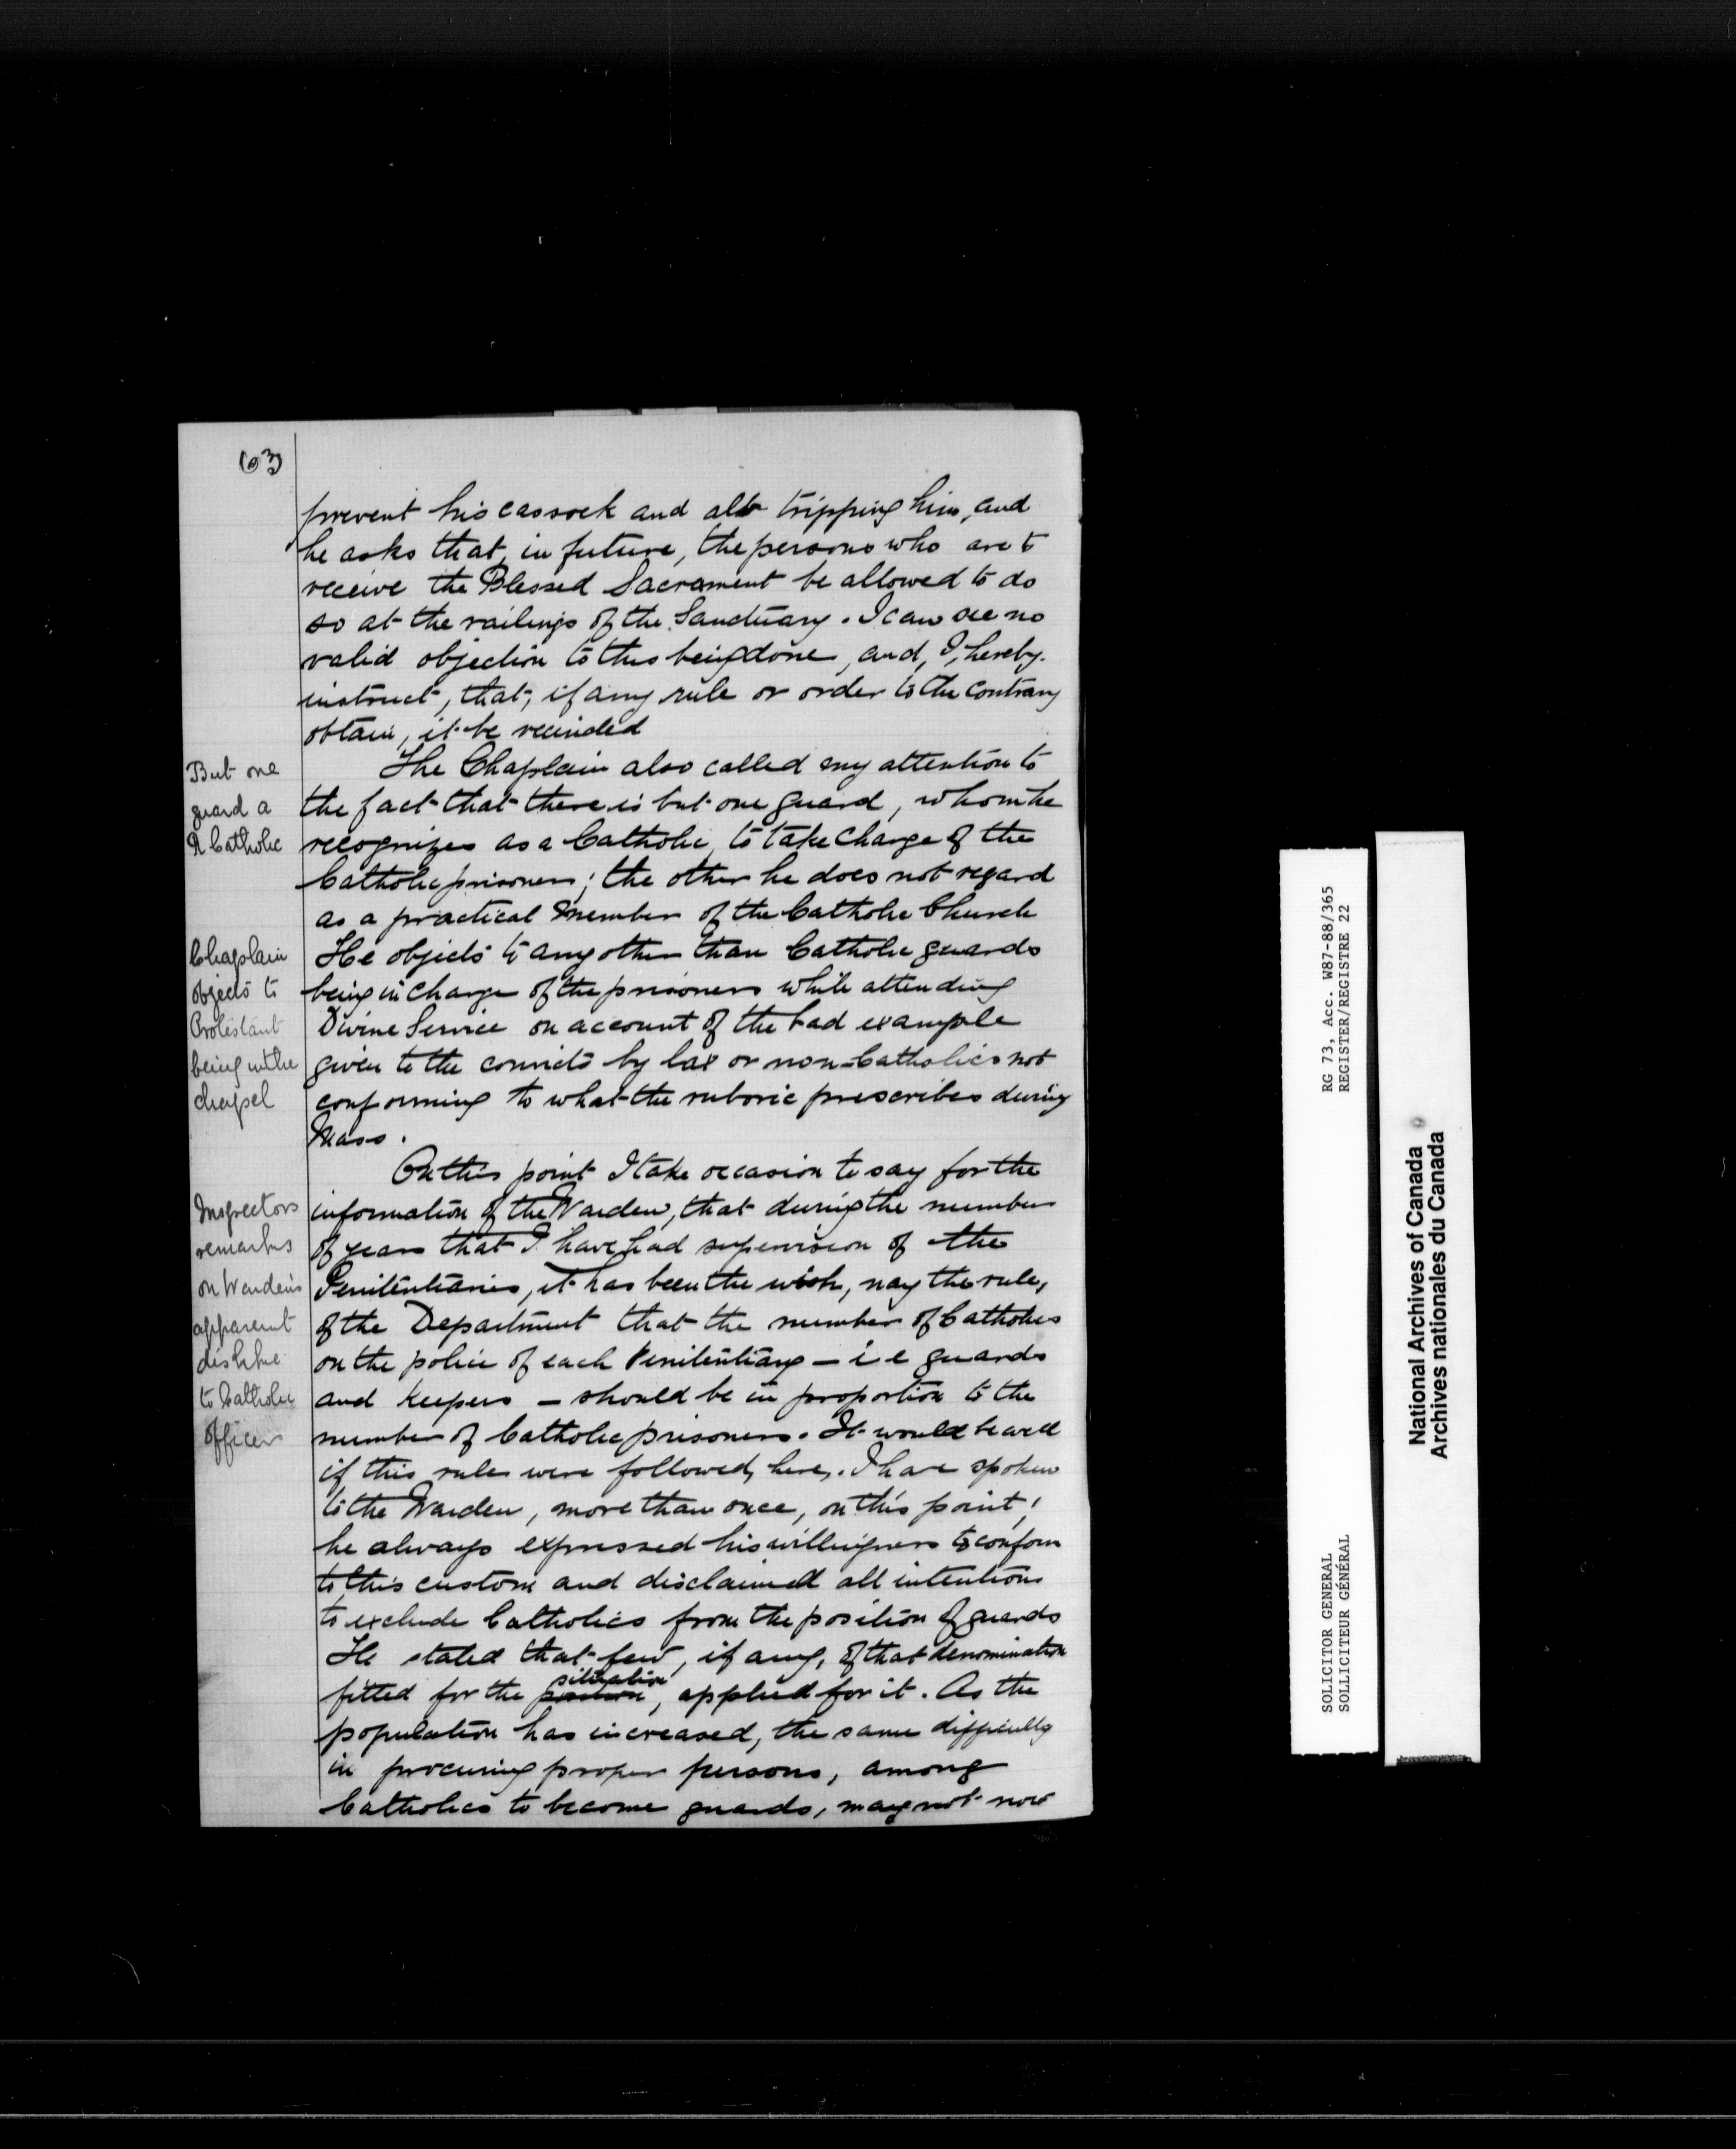 63
prevent his cassock and alb tripping him, and
he asks that, in future, the persons who are to
receive the Blessed Sacrament be allowed to do
so at the railings of the Sanctuary. I can see no
valid objection to this being done, and, I, hereby
instruct, that, if any rule or order to the contrary
obtain, it be recinded
But one
guard a
R Catholic
The Chaplain also called my attention to
the fact that there is but one guard, whom he
recognizes as a Catholic, to take charge of the
Catholic prisoners; the other he does not regard
as a practical member of the Catholic Church
Chaplain
objects to
Protestant
being in the
chapel
He objects to any other than Catholic guards
being in charge of the prisoners while attending
Divine Service on account of the bad example
given to the convicts by lax or non-Catholics not
conforming to what the rubric prescribes during
Mass.
Inspectors
remarks
on Warden's
apparent
dislike
to Catholic
Officers
On this point I take occasion to say for the
information of the Warden, that during the number
of years that I have had supervision of the
Penitentiaries, it has been the wish, nay the rule,
of the Department that the number of Catholics
on the police of each Penitentiary - i e guards
and keepers - should be in proportion to the
number of Catholic prisoners. It would be well
if this rule were followed, here. I have spoken
to the Warden, more than once, on this point;
he always expressed his willingness to conform
to this custom and disclaimed all intentions
to exclude Catholics from the position of guards
He stated that few, if any, of that denomination
situation
fitted for the position, applied for it. As the
population has increased, the same difficulty
in procuring proper persons, among
Catholics to become guards, may not now
RG 73, Acc. W87-88/365
REGISTER/REGISTRE 22
SOLICITOR GENERAL
SOLLICITEUR GÉNÉRAL
National Archives of Canada
Archives nationales du Canada